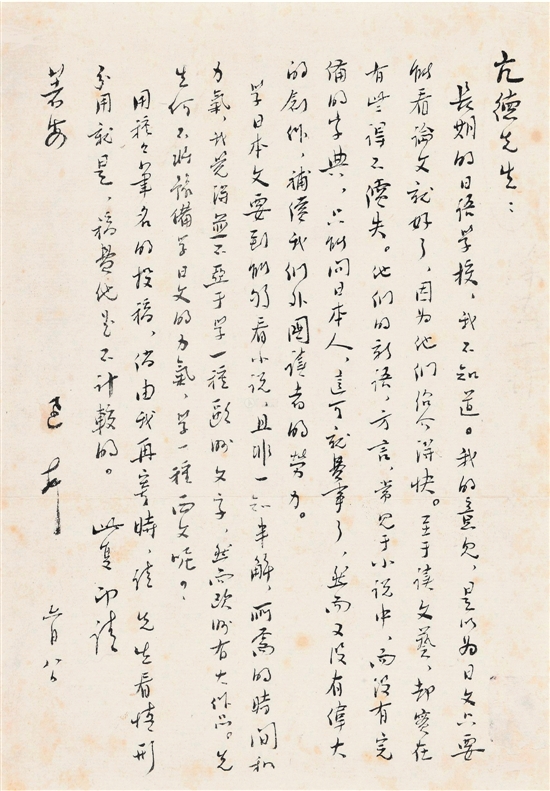 亢德先生：
長期的日语学校，我不知道。我的意見，是以为日文只要
能看論文就好了，因为他们绍介得快。至于读文藝，却实在
有些得不償失。他们的新语，方言，常见于小说中，而没有完
備的字典，只能问日本人，这可就費事了，然而又没有偉大
的創作，補償我们外國讀者的勞力。
学日本文要到能够看小说，且非一知半解，所需的时间和
力氣，我觉得並不亞于学一種歐洲文字，然而欧洲有大作品。先
生何不将豫備学日文的力氣，学一種西文呢？
用種々筆名的投稿，倘由我再寄時，请 先生看情形
分用就是，稿費他是不计較的。 此复即请
著安
迅 頓 六月八日